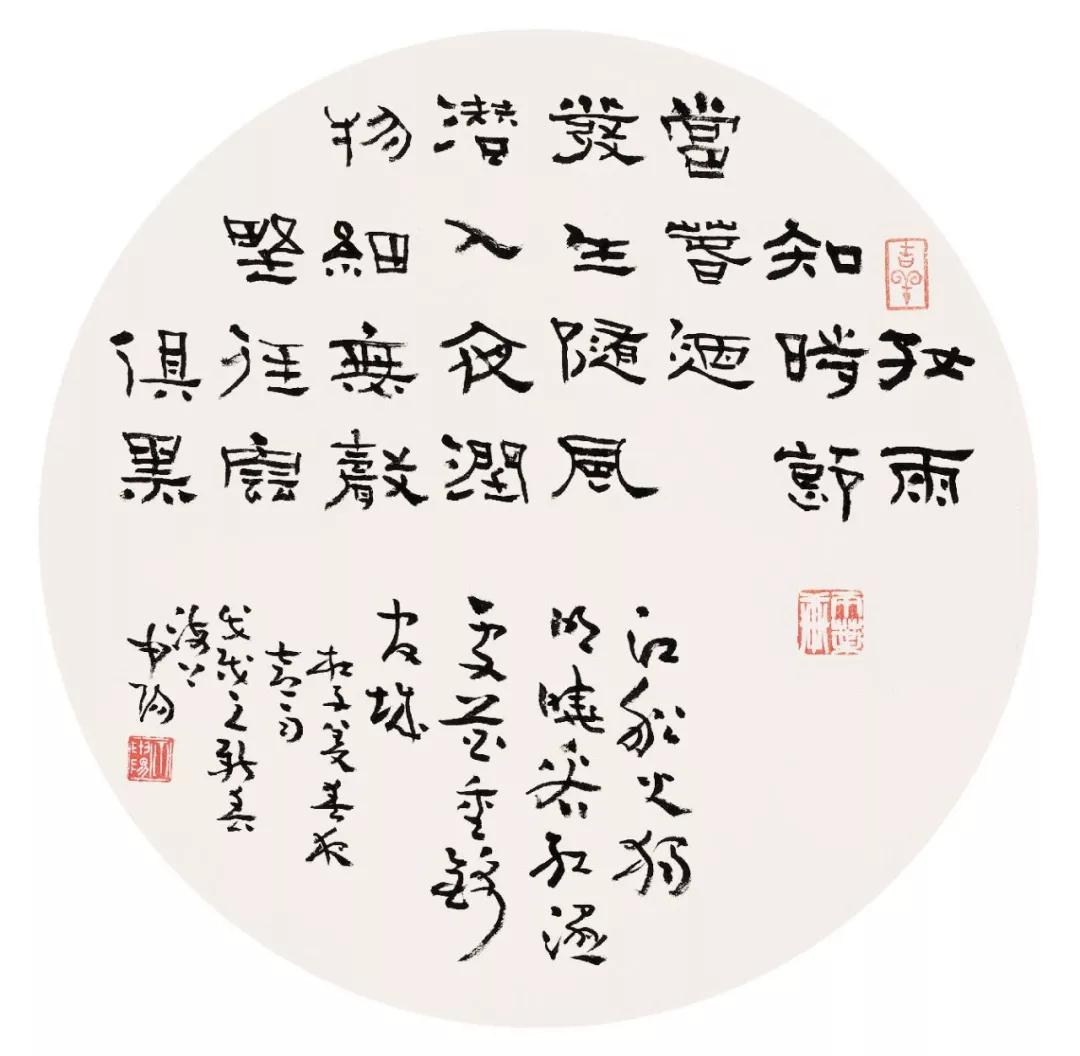 吉羊
好雨
知時節
當萅迺
發生隨風
潛入夜潤
物細無聲
野徑雲
俱黑
江船火獨
明曉看紅濕
處花重錦
官城
杜子美春夜
喜雨
戊戌之新春
海上